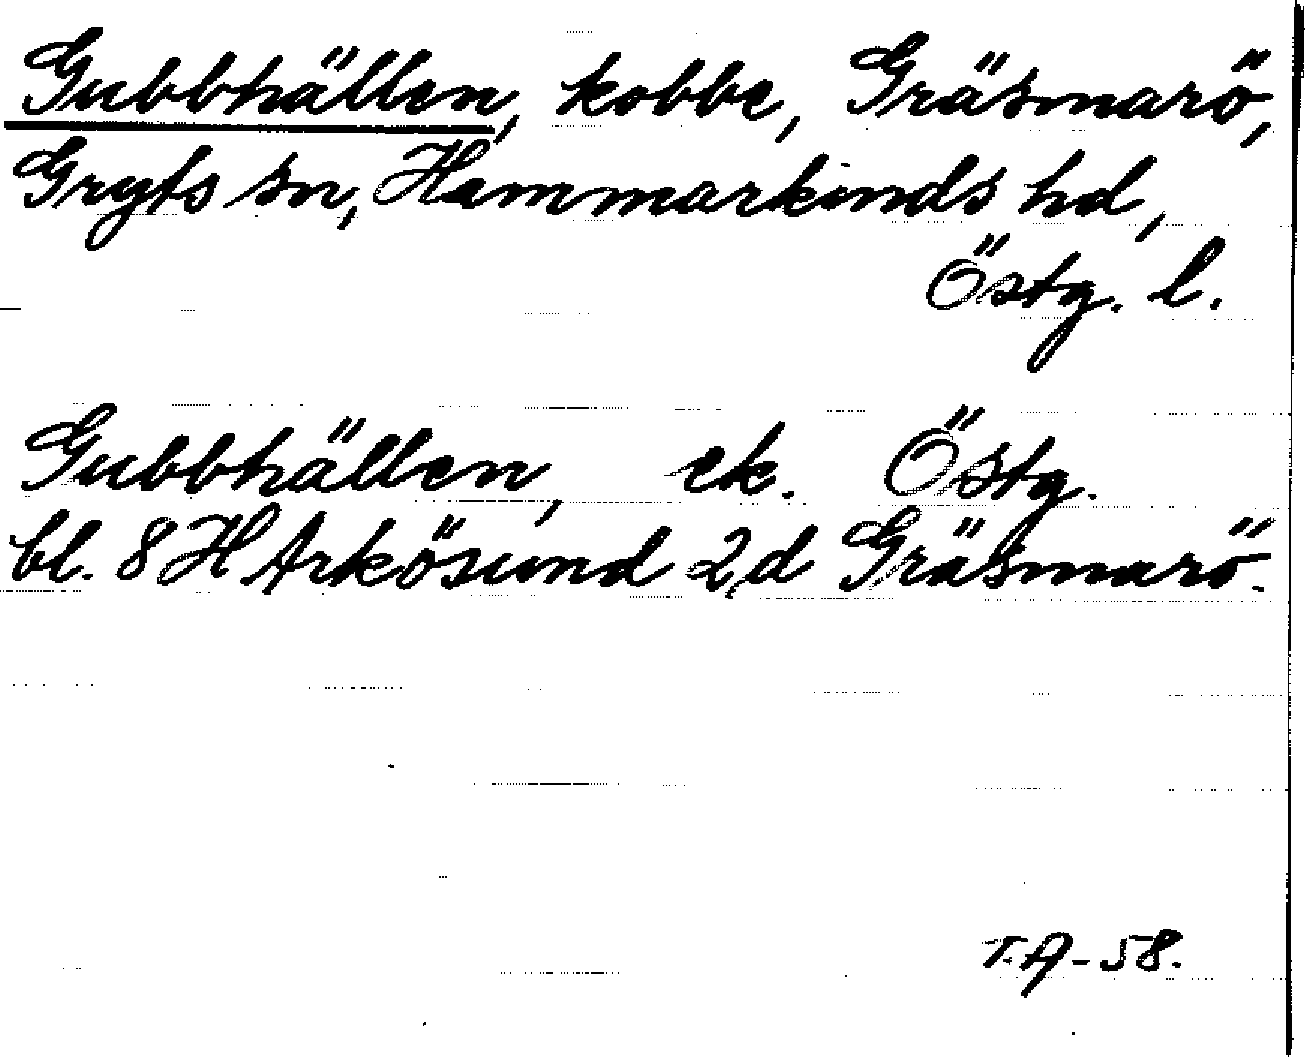 Gubbhällen, kobbe, Gräsmarö,
Gryts sn, Hammarkinds hd,
Östg. l.
Gubbhällen, ek. Östg.
bl. 8 H Arkösund 2,d Gräsmarö.
T.A-58.